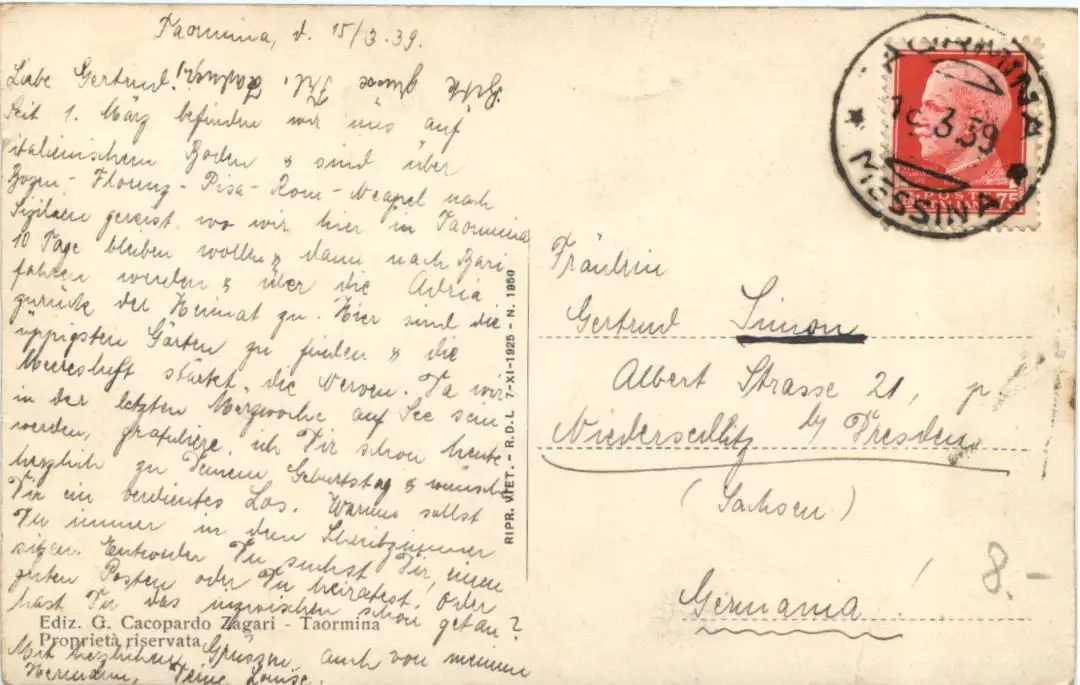 Taormina, d. 15/3.39.
Liebe Gertrud!
Seit 1. März befinden wir uns auf
italienischem Boden & sind über
Bozen - Florenz - Pisa - Rom - Neapel nach
Sizilien gereist, wo wir hier in Taormina
10 Tage bleiben wollen & dann nach Bari
fahren werden & über die Adria
zurück der Heimat zu. Hier sind die
üppigsten Gärten zu finden & die
Meeresluft stärkt die Nerven. Da wir
in der letzten Märzwoche auf See sein
werden, gratuliere ich Dir schon heute
herzlich zu Deinem Geburtstag & wünsche
Dir ein verdientes Los. Warum sollst
Du immer in dem sitzen. Entweder Du suchst Dir einen
guten Posten oder Du heiratest. Oder
hast Du das inzwischen schon getan?
Mit herzlichen Grüssen, auch von meinem
Hermann, Deine Louise.
Ediz. G. Cacopardo Zagari - Taormina
Proprietà riservata
RIPR. VIET. - R.D.L. 7-XI-1925 - N. 1950
TAORMINA
3.39
MESSINA
POSTE
75
Fräulein
Gertrud Simon
Albert Strasse 21, p
Niedersedlitz by Dresden
(Sachsen)
Germania!
8.-